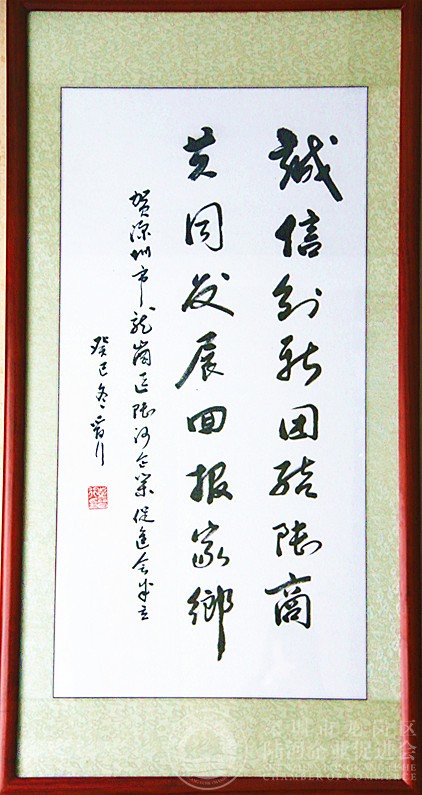 誠信創新团结陸商
共同发展回报家鄉
贺深圳市龙岗区陆河企業促進会成立
癸巳冬
深圳市龙岗区
陆河企业促进会
CHAMBER OF COMMERCE